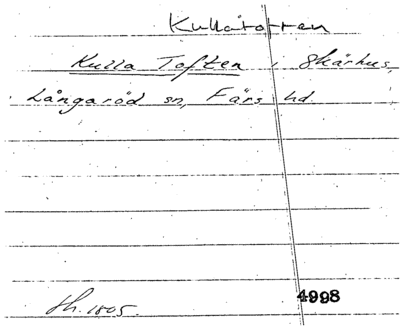 Kullatoften
Kulla Toften i Skärhus,
Långaröd sn, Färs hd.
Sk. 1805.
4998